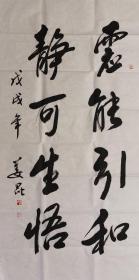 虚能引和
静可生悟
戊戌年
姜昆